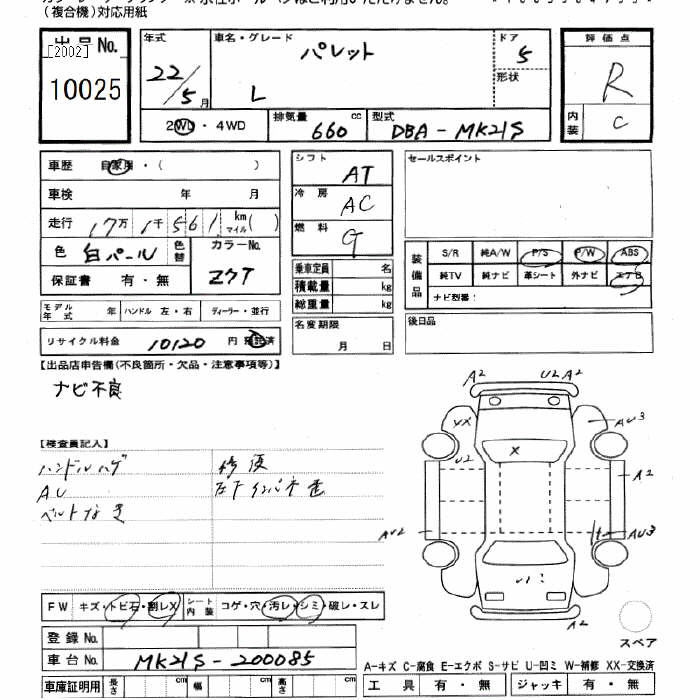 (複合機)対応用紙
出品No.
[2002]
10025
年式
22/5月
車名・グレード
パレット
L
ドア
5
形状
評価点
R
内装
C
2WD・4WD
排気量
660cc
型式
DBA-MK21S
車歴 自家用・( )
車検 年 月
走行 17万1千561 km マイル( )
色 白パール
色替
カラーNo.
Z7T
保証書 有・無
モデル年式 年
ハンドル 左・右
ディーラー・並行
リサイクル料金 10120円 預託済
シフト
AT
冷房
AC
燃料
G
乗車定員 名
積載量 kg
総重量 kg
名変期限
月 日
セールスポイント
装備品
S/R 純A/W P/S P/W ABS
純TV 純ナビ 革シート 外ナビ エアB
ナビ型番:
後日品
【出品店申告欄(不良箇所・欠品・注意事項等)】
ナビ不良
【検査員記入】
ハンドルハゲ
AU
修復
A2
U2 A2
XX
AU3
U2
X
A2
AU2
AU3
A2
FW キズ・トビ石・割レX
シート内装 コゲ・穴・汚レ・シミ・破レ・スレ
登録No.
車台No. MK21S-200085
スペア
A-キズ C-腐食 E-エクボ S-サビ U-凹ミ W-補修 XX-交換済
車庫証明用 長さ cm 幅 cm 高さ cm
工具 有・無 ジャッキ 有・無